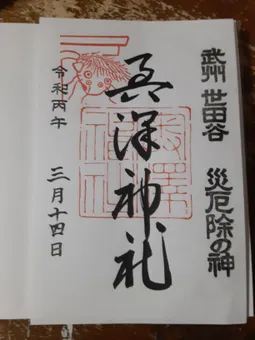 武州 世田谷 災厄除の神
奥澤神社
令和丙午 三月十四日